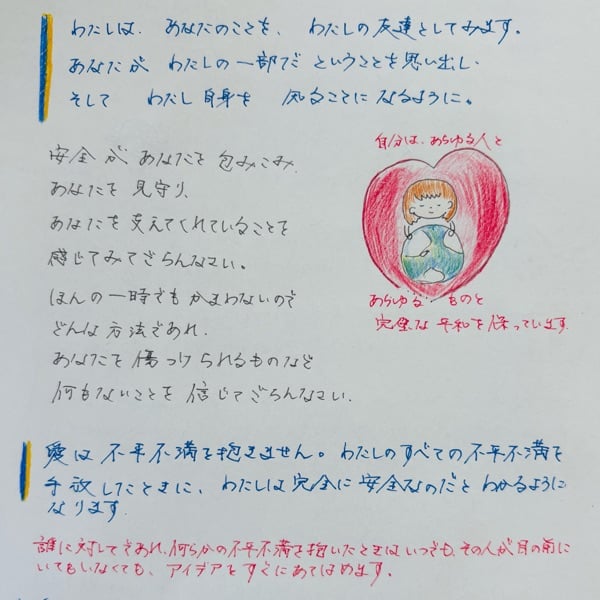 わたしは、あなたのことを、わたしの友達としてみます。
あなたが わたしの一部だ ということを思い出し、
そして わたし自身を 知ることに なるように。
安全が あなたを 包みこみ、
あなたを 見守り、
あなたを 支えてくれていることを
感じてみてごらんなさい。
ほんの一時でもかまわないので
どんな方法であれ、
あなたを 傷つけられるものなど
何もないことを 信じてごらんなさい。
自分は、あらゆる人と
あらゆる ものと
完璧な 平和を保っています。
愛は 不平不満を抱きません。わたしのすべての不平不満を
手放したときに、わたしは完全に 安全なのだと わかるように
なります。
誰に対してであれ、何らかの不平不満を抱いたときはいつでも、その人が目の前に
いてもいなくても、アイデアをすぐにあてはめます。